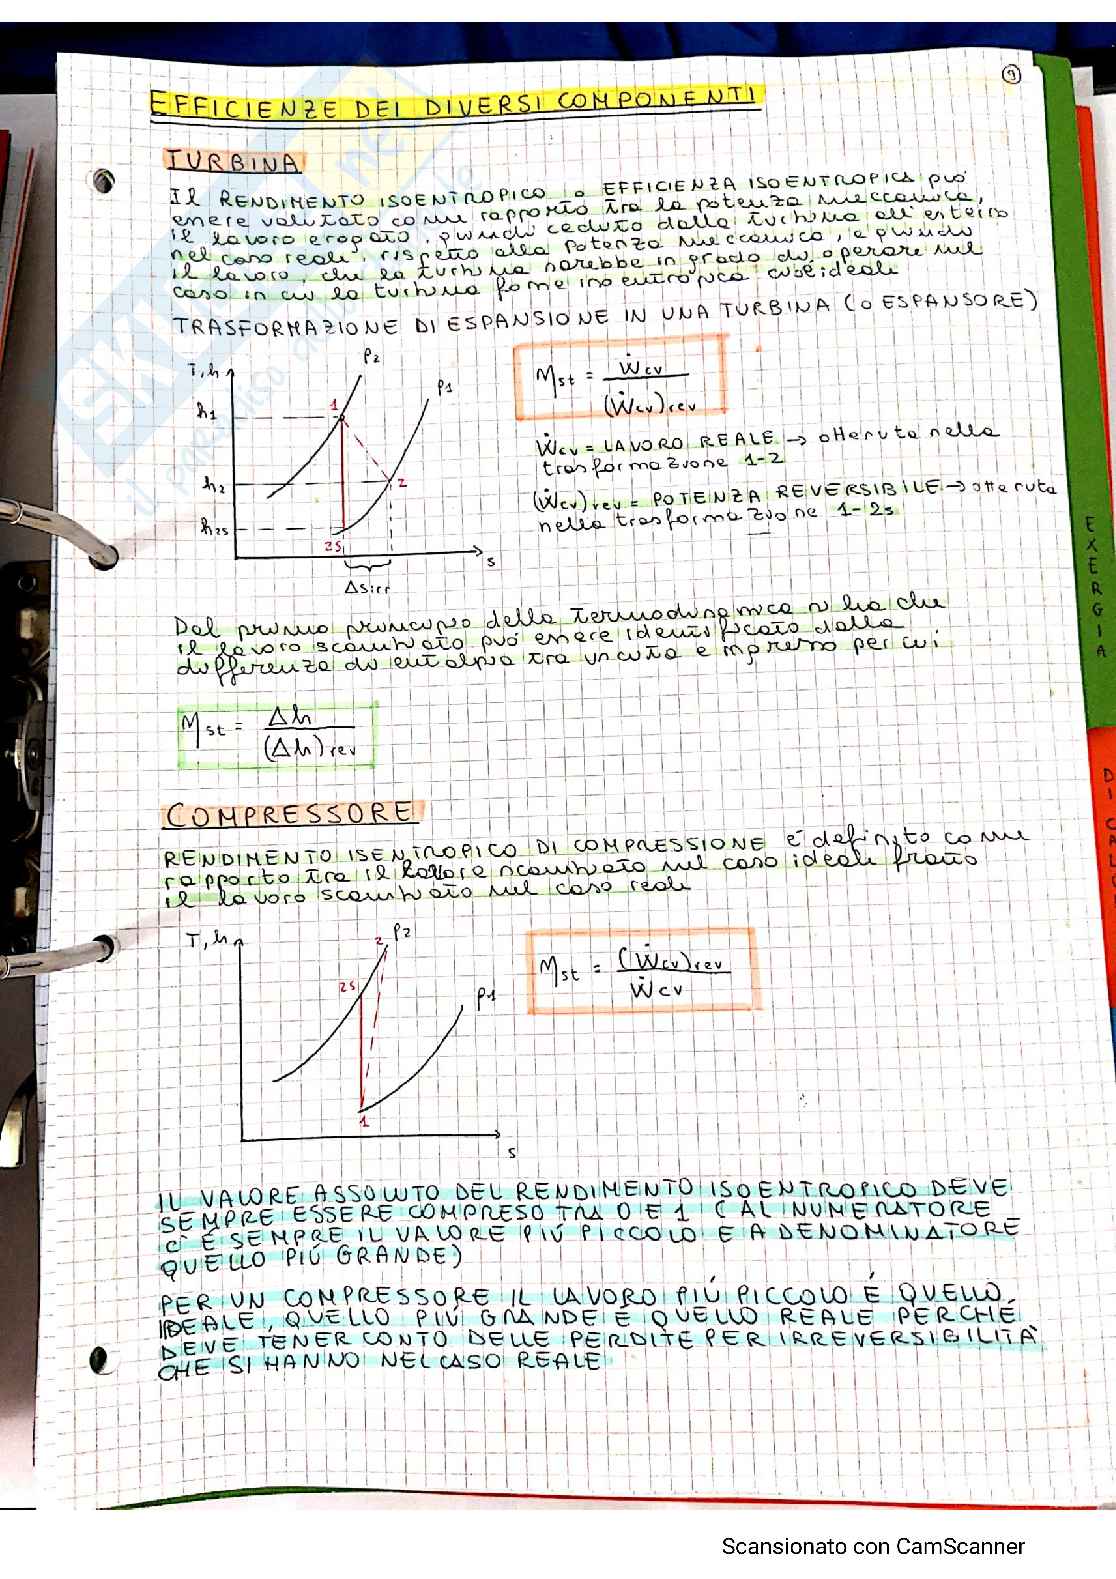 9
EFFICIENZE DEI DIVERSI COMPONENTI
TURBINA
Il RENDIMENTO ISOENTROPICO o EFFICIENZA ISOENTROPICA può
essere valutato come rapporto tra la potenza meccanica,
il lavoro erogato, quindi ceduto dalla turbina all'esterno
nel caso reale, rispetto alla potenza meccanica, e quindi
il lavoro, che la turbina sarebbe in grado di operare nel
caso in cui la turbina fosse isoentropica cioè ideale
TRASFORMAZIONE DI ESPANSIONE IN UNA TURBINA (o ESPANSORE)
T, h
P2
P1
h1
1
h2
2
h2s
2s
s
Δsirr
ηst = Ẇcv / (Ẇcv)rev
Ẇcv = LAVORO REALE → ottenuta nella
trasformazione 1-2
(Ẇcv)rev = POTENZA REVERSIBILE → ottenuta
nella trasformazione 1-2s
Dal primo principio della termodinamica si ha che
il lavoro scambiato può essere identificato dalla
differenza di entalpia tra uscita e ingresso per cui:
ηst = Δh / (Δh)rev
COMPRESSORE
RENDIMENTO ISENTROPICO DI COMPRESSIONE è definito come
rapporto tra il lavoro scambiato nel caso ideale fratto
il lavoro scambiato nel caso reale
T, h
2
P2
2s
P1
1
s
ηst = (Ẇcv)rev / Ẇcv
IL VALORE ASSOLUTO DEL RENDIMENTO ISOENTROPICO DEVE
SEMPRE ESSERE COMPRESO TRA 0 E 1 (AL NUMERATORE
C'È SEMPRE IL VALORE PIÙ PICCOLO E A DENOMINATORE
QUELLO PIÙ GRANDE)
PER UN COMPRESSORE IL LAVORO PIÙ PICCOLO È QUELLO
IDEALE, QUELLO PIÙ GRANDE È QUELLO REALE PERCHÉ
DEVE TENER CONTO DELLE PERDITE PER IRREVERSIBILITÀ
CHE SI HANNO NEL CASO REALE
EXERGIA
Scansionato con CamScanner